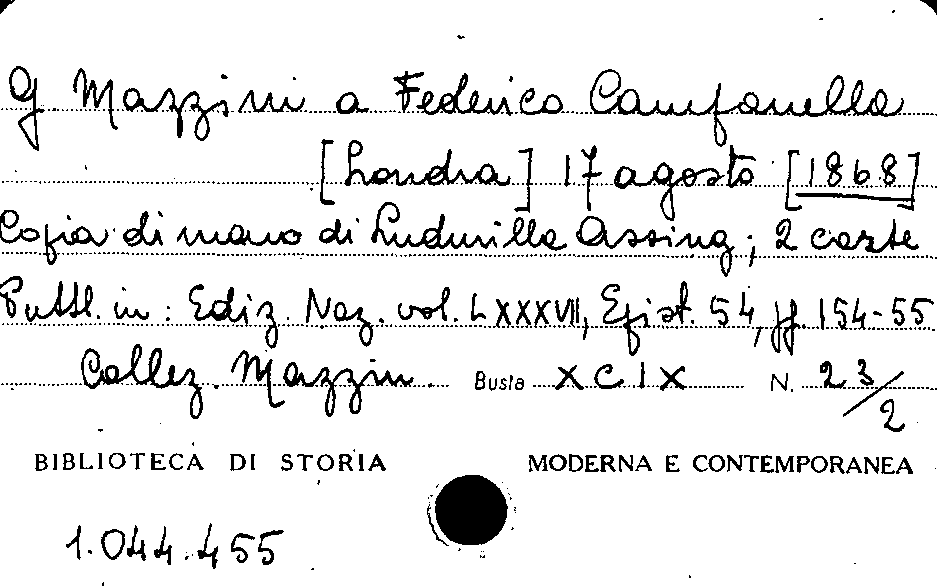 G Mazzini a Federico Campanella
[Londra] 17 agosto [1868]
Copia di mano di Ludmilla Assing; 2 carte
Pubbl. in: Ediz. Naz. vol. LXXXVII, Epist. 54, pp. 154-55
Collez. Mazzini Busta XCIX N. 23/2
BIBLIOTECA DI STORIA MODERNA E CONTEMPORANEA
1.044.455